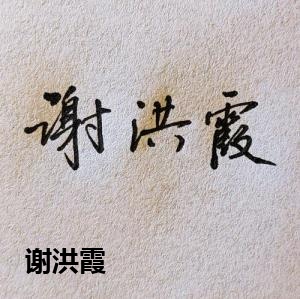 谢洪霞
谢洪霞